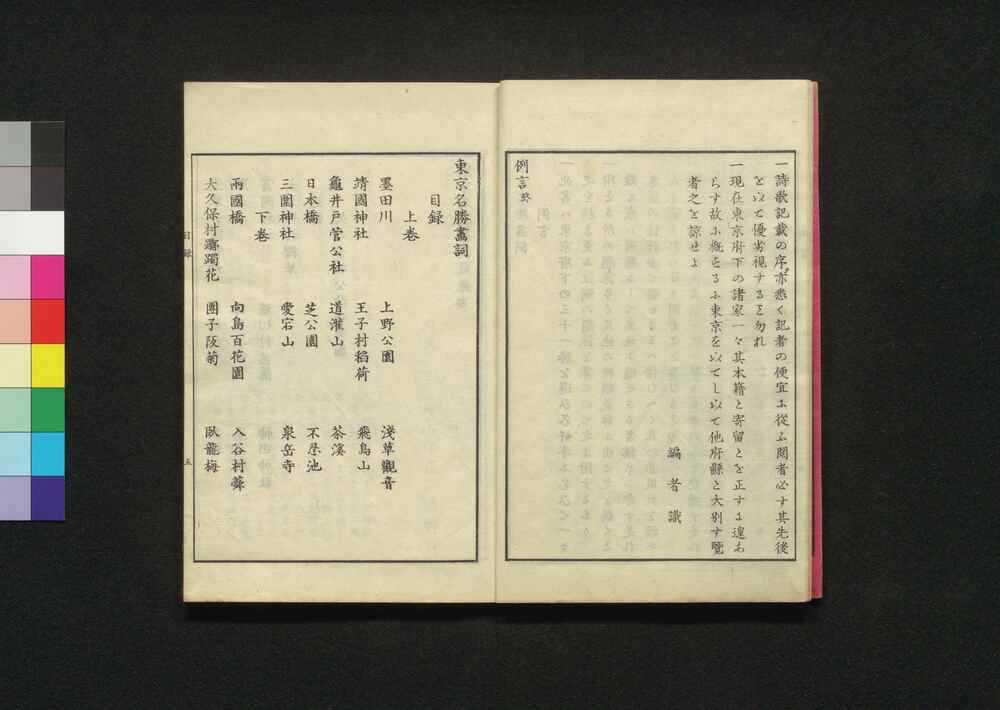 一詩歌記載の序亦悉く記者の便宜ふ從ふ閲者必す其先後
を以て優劣視すると勿れ
一現在東京府下の諸家一々其本籍と寄留とを正すよ遑あ
らす故ふ概するふ東京を以てし以て他府縣と大別す覽
者之を諒せよ
編者識
例言終
東京名勝畵詞
目録
上卷
墨田川 上野公園 淺草觀音
靖國神社 王子村稻荷 飛鳥山
龜井戸菅公社 道灌山 茶溪
日本橋 芝公園 不忍池
三圍神社 愛宕山 泉岳寺
下卷
兩國橋 向島百花園 入谷村蕣
大久保村躑躅花 團子阪菊 臥龍梅
目録
五